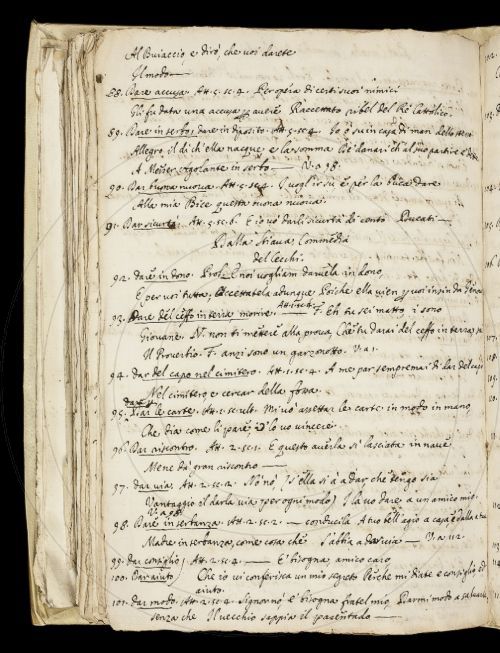 Al Buiaccio, e dirò, che voi darete
Il modo —
88. Dare accusa. Att. 5. sc. 4. Per opera di certi suoi nimici
Gli fu data una accusa avere Raccettato ribel del Re Cattolico
89. Dare in serbo; dare in diposito. Att. 5. sc. 4. Io ò su in casa di man dello stesso
Allegro il dì ch'ella nacque e la somma De' danari ch'al suo partire e'
A Messer in serbo — V. a 98.
90. Dar buona nuova. Att. 5. sc. 4. I' vogl' ir su e per la buca dare
Alla mia Bice questa nuova
91. Dar sicurtà. Att. 5. sc. 6. E io vo' darli sicurtà di cento Ducati —
Dalla Stiava Commedia
del Cecchi.
92. dare in dono. Prol. E noi vogliam darvela in dono,
E per voi tutta, Accettatela adunque Poiche ella vien voi insin da Genova
93. Dare del ceffo in terra morire. Att. 1. sc. 1. F. Eh tu sei matto, i' sono
Giovane. N. non ti mettere alla prova, Che tu darai del ceffo in terra,
Il Proverbio. F. anzi sono un garzonotto. V. a 1.
94. dar del capo nel cimitero. Att. 1. sc. 4. A me par sempre mai di dar del capo
Nel cimitero e cercar della fossa.
95. Dar le carte. Att. 1. sc. ult. Mi vo' assettar le carte in modo in mano,
Che, dia come li pare, i' lo vo' vincere.
96. Dar riscontro. Att. 2. sc. 1. E questo averla si lasciata in nave
Mene dà gran riscontro —
97. dar via. Att. 2. sc. 2. No no, s'ella si à a dar che tengo sia
Vantaggio il darla via per ogni modo I' la vo' dare a un amico mio.
V. a 98.
98. Dare in serbanza. Att. 2. sc. 2. — conducila A tuo bell'agio a casa e dalla a tua
Madre in serbanza, come cosa che s'abbia a dar via — V. a 112.
99. dar consiglio. Att. 2. sc. 4. — E' bisogna, amico caro
100. Dar aiuto. Che io vi conferisca un mio segreto Perche mi diate e consiglio ed
aiuto.
101. dar modo. Att. 2. sc. 4. Signor no, e' bisogna fratel mio, Darmi modo a salvarla
senza che Il vecchio sappia il —